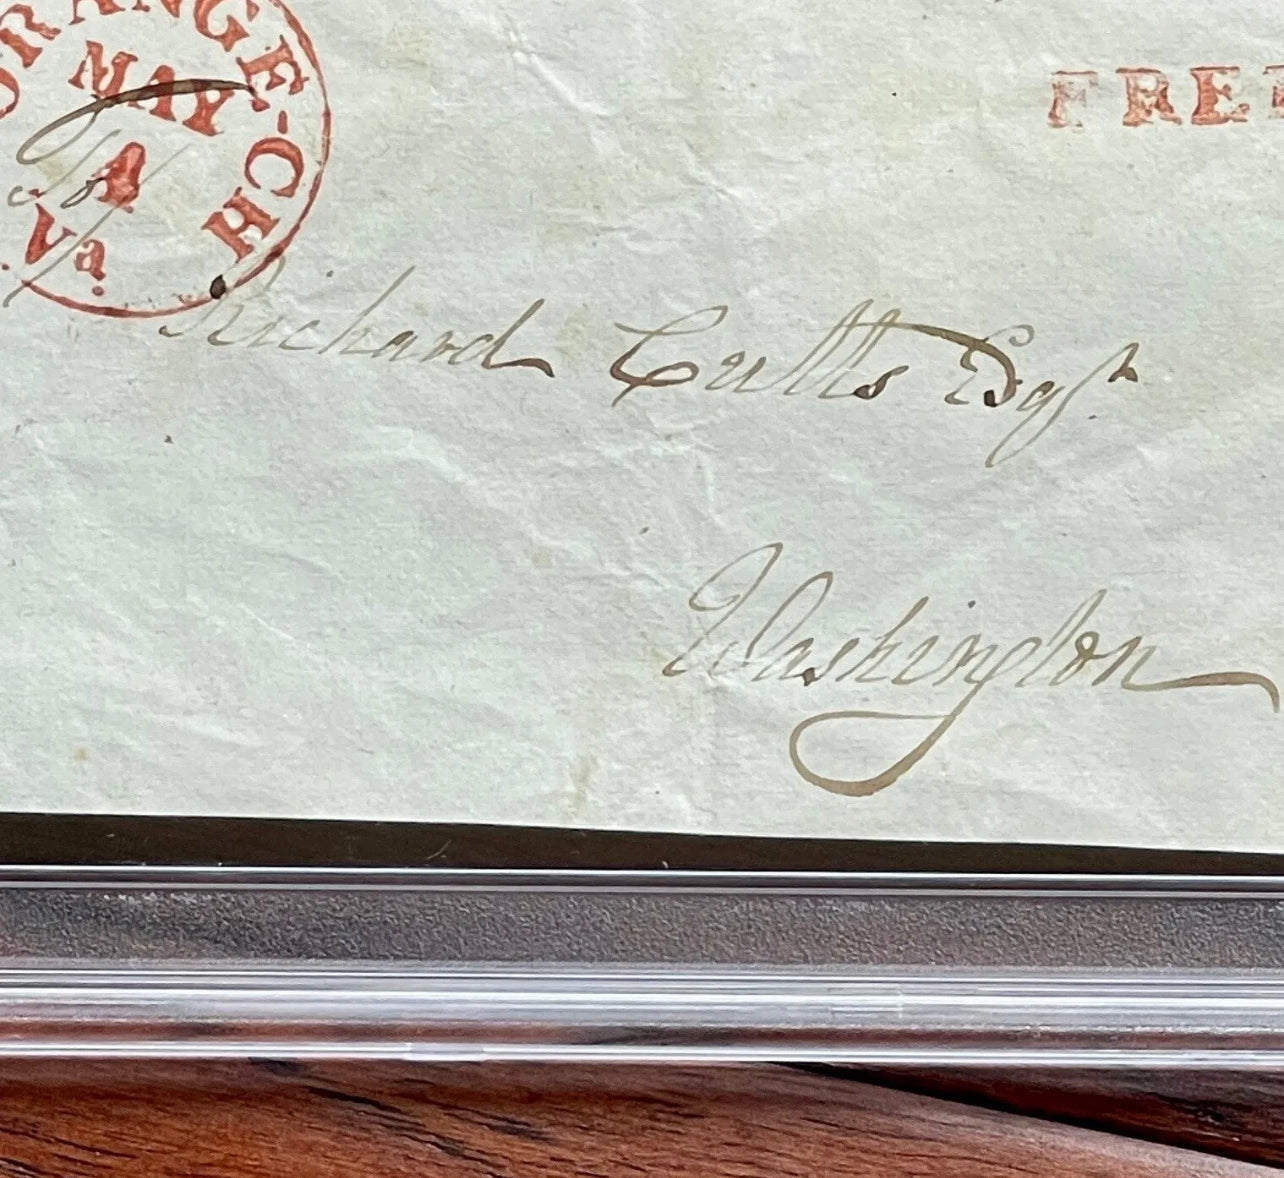 ORANGE-CH
MAY
4
Va
FREE
To
Richard Cutts Esqr.
Washington